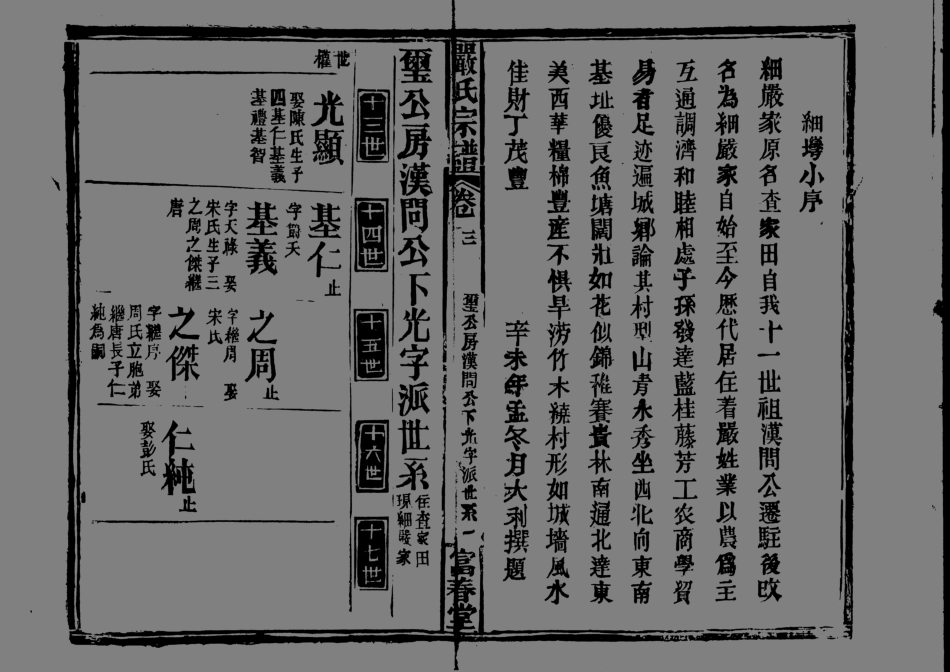 細塆小序
細嚴家原名查家田自我十一世祖漢問公遷駐後改
名為細嚴家自始至今歷代居住着嚴姓業以農爲主
互通調濟和睦相處子孫發達藍桂藤芳工农商學貿
易者足迹遍城鄉論其村型山青水秀坐西北向東南
基址優良魚塘闊壯如花似錦稚賽貴林南通北達東
美西華糧棉豐産不惧旱涝竹木繞村形如城墻風水
佳財丁茂豐
辛未年孟冬月大利撰題
嚴氏宗譜 卷三 璽公房漢問公下光字派世系 一 富春堂
璽公房漢問公下光字派世系 住查家田
現細嚴家
十三世 十四世 十五世 十六世 十七世
世權
光顯
娶陳氏生子
四基仁基義
基禮基智
基仁 止
字爵天
基義
字天祿 娶
宋氏生子三
之周之傑繼
唐
之周 止
字維周 娶
宋氏
之傑
字繼序 娶
周氏立胞弟
繼唐長子仁
純為嗣
仁純 止
娶彭氏